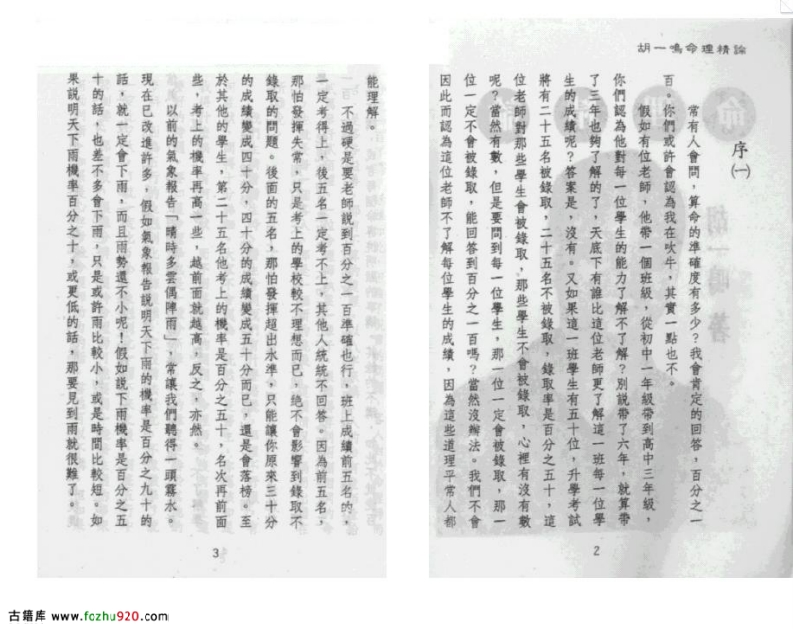 胡一鳴命理精論
序㈠
常有人會問，算命的準確度有多少？我會肯定的回答，百分之一
百。你們或許會認為我在吹牛，其實一點也不。
假如有位老師，他帶一個班級，從初中一年級帶到高中三年級，
你們認為他對每一位學生的能力了解不了解？別說帶了六年，就算帶
了三年也夠了解的了，天底下有誰比這位老師更了解這一班每一位學
生的成績呢？答案是，沒有。又如果這一班學生有五十位，升學考試
將有二十五名被錄取，二十五名不被錄取，錄取率是百分之五十，這
位老師對那些學生會被錄取，那些學生不會被錄取，心裡有沒有數
呢？當然有數，但是要問到每一位學生，那一位一定會被錄取，那一
位一定不會被錄取，能回答到百分之一百嗎？當然沒辦法。我們不會
因此而認為這位老師不了解每位學生的成績，因為這些道理平常人都
2
能理解。
不過硬是要老師說到百分之一百準確也行，班上成績前五名的，
一定考得上，後五名一定考不上，其他人統統不回答。因為前五名，
那怕發揮失常，只是考上的學校較不理想而已，絕不會影響到錄取不
錄取的問題。後面的五名，那怕發揮超出水準，只能讓你原來三十分
的成績變成四十分，四十分的成績變成五十分而已，還是會落榜。至
於其他的學生，第二十五名他考上的機率是百分之五十，名次再前面
些，考上的機率再高一些，越前面就越高，反之，亦然。
以前的氣象報告「晴時多雲偶陣雨」，常讓我們聽得一頭霧水。
現在已改進許多，假如氣象報告說明天下雨的機率是百分之九十的
話，就一定會下雨，而且雨勢還不小呢！假如說下雨機率是百分之五
十的話，也差不多會下雨，只是或許雨比較小，或是時間比較短。如
果說明天下雨機率百分之十，或更低的話，那要見到雨就很難了。
3
古籍库 www.fozhu920.com